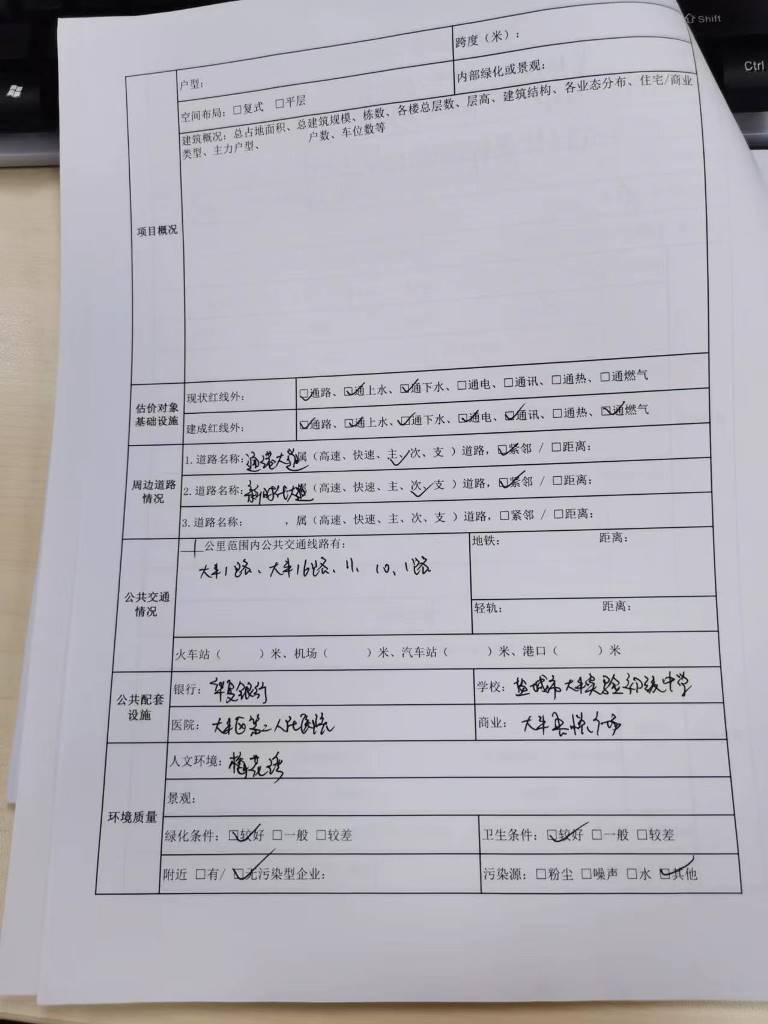 Shift
Ctrl
户型:
跨度（米）:
空间布局: □复式 □平层
内部绿化或景观:
项目概况
建筑概况: 总占地面积、总建筑规模、栋数、各楼总层数、层高、建筑结构、各业态分布、住宅/商业
类型、主力户型、 户数、车位数等
估价对象
基础设施
现状红线外:
☑通路、☑通上水、☑通下水、□通电、□通讯、□通热、□通燃气
建成红线外:
☑通路、☑通上水、☑通下水、☑通电、☑通讯、□通热、☑通燃气
周边道路
情况
1.道路名称: 通港大道属（高速、快速、主✓、次、支 ）道路，☑紧邻 / □距离:
2.道路名称: 新时代大道（高速、快速、主、次✓、支 ）道路，☑紧邻 / □距离:
3.道路名称: ，属（高速、快速、主、次、支 ）道路，□紧邻 / □距离:
公共交通
情况
1公里范围内公共交通线路有:
大丰1路、大丰16路、11、10、1路
地铁: 距离:
轻轨: 距离:
火车站（ ）米、机场（ ）米、汽车站（ ）米、港口（ ）米
公共配套
设施
银行: 华夏银行
学校: 盐城市大丰实验初级中学
医院: 大丰区第二人民医院
商业: 大丰吾悦广场
环境质量
人文环境: 梅花湾
景观:
绿化条件: ☑较好 □一般 □较差
卫生条件: ☑较好 □一般 □较差
附近 □有/ ☑无污染型企业:
污染源: □粉尘 □噪声 □水 ☑其他